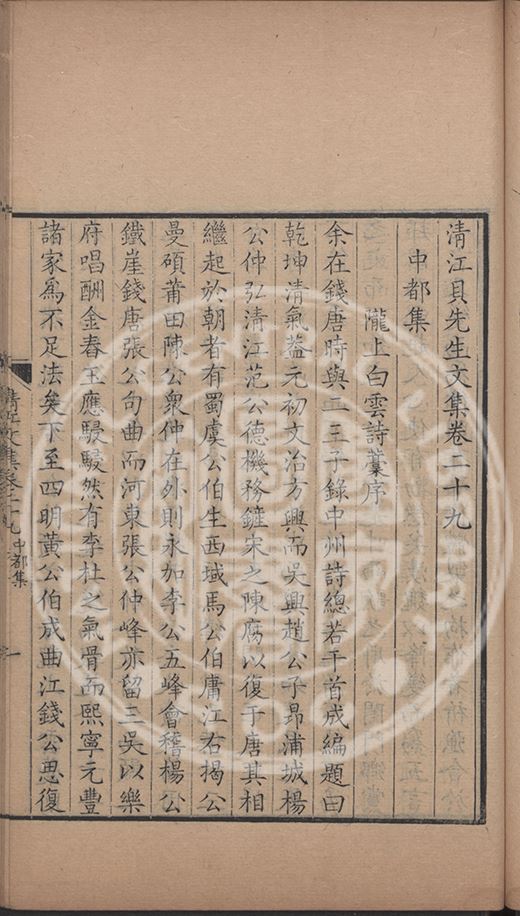 清江貝先生文集卷二十九
中都集
隴上白雲詩藁序
余在錢唐時與二三子錄中州詩總若干首成編題曰
乾坤清氣蓋元初文治方興而吳興趙公子昂浦城楊
公仲弘清江范公德機務鏟宋之陳腐以復于唐其相
繼起於朝者有蜀虞公伯生西域馬公伯庸江右揭公
曼碩莆田陳公衆仲在外則永加李公五峰會稽楊公
鐵崖錢唐張公句曲而河東張公仲峰亦留三吳以樂
府唱酬金舂玉應駸駸然有李杜之氣骨而熙寧元豐
諸家爲不足法矣下至四明黃公伯成曲江錢公思復
清江文集卷二十九 中都集 一